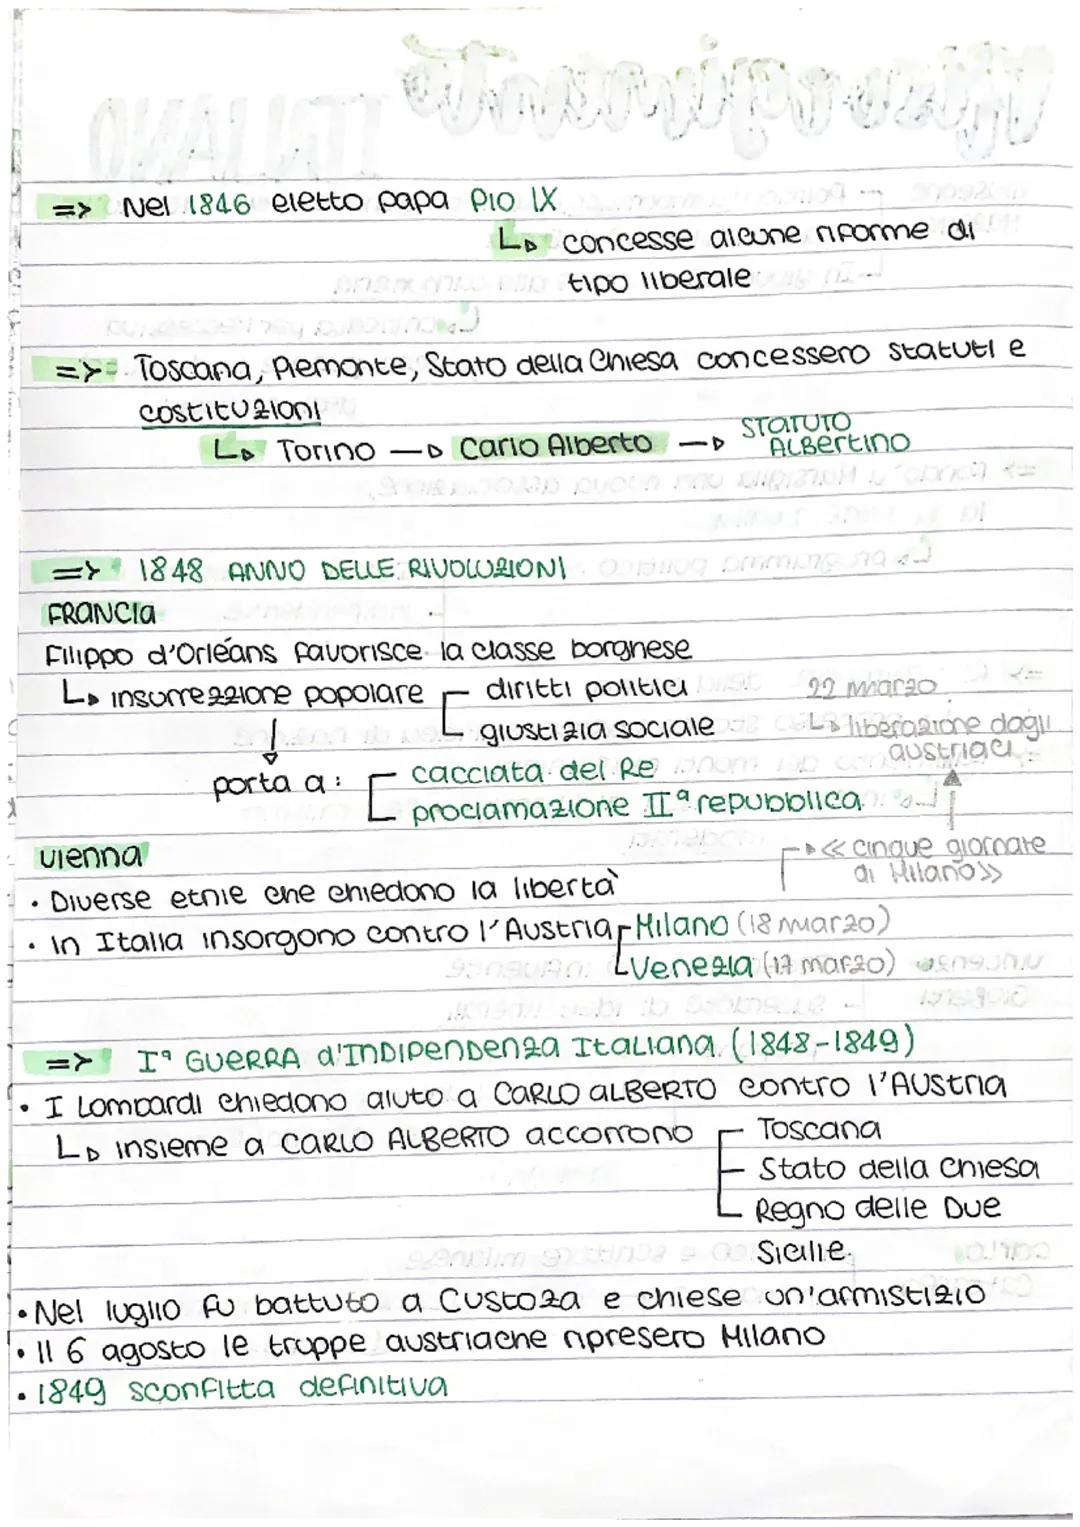 => Nel 1846 eletto papa PIO IX
↳ concesse alcune riforme di
tipo liberale
=> Toscana, Piemonte, Stato della Chiesa concessero statuti e
costituzioni
↳ Torino → Carlo Alberto → STATUTO
ALBERTINO
=> 1848 ANNO DELLE RIVOLUZIONI
FRANCIA
Filippo d'Orléans favorisce la classe borghese
↳ insurrezione popolare diritti politici
giustizia sociale
↓
porta a: cacciata del Re
proclamazione IIª repubblica
22 marzo
↳ liberazione dagli
austriaci
<< cinque giornate
di Milano>>
Vienna
• Diverse etnie che chiedono la libertà
• In Italia insorgono contro l'Austria Milano (18 marzo)
Venezia (17 marzo)
=> Iª GUERRA d'INDIPENDENZA ITALIANA (1848-1849)
• I Lombardi chiedono aiuto a CARLO ALBERTO contro l'Austria
↳ insieme a CARLO ALBERTO accorrono Toscana
Stato della Chiesa
Regno delle Due
Sicilie.
• Nel luglio fu battuto a Custoza e chiese un'armistizio
• Il 6 agosto le truppe austriache ripresero Milano
• 1849 sconfitta definitiva